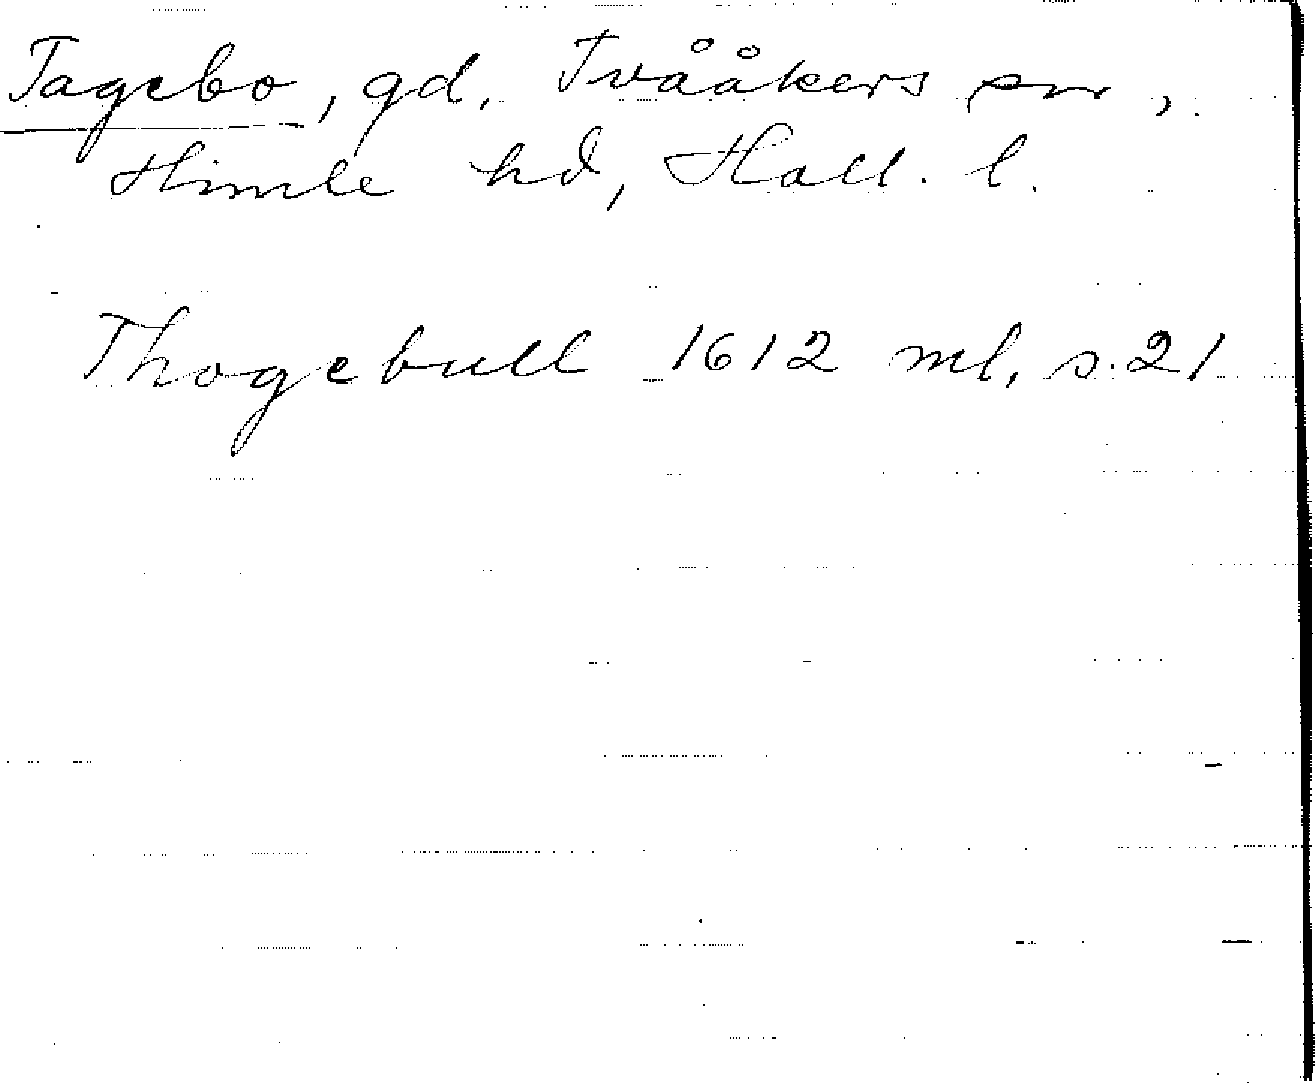 Tagebo, gd, Tvååkers sn,
Himle hd, Hall. l.
Thogebull 1612 ml, s. 21